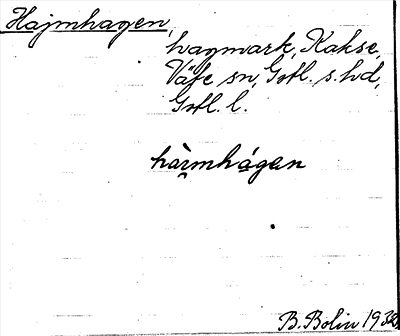 Hajmhagen,
hagmark, Kakse,
Väte sn, Gotl. s. hd,
Gotl. l.
hàrmhágen
B. Bolin